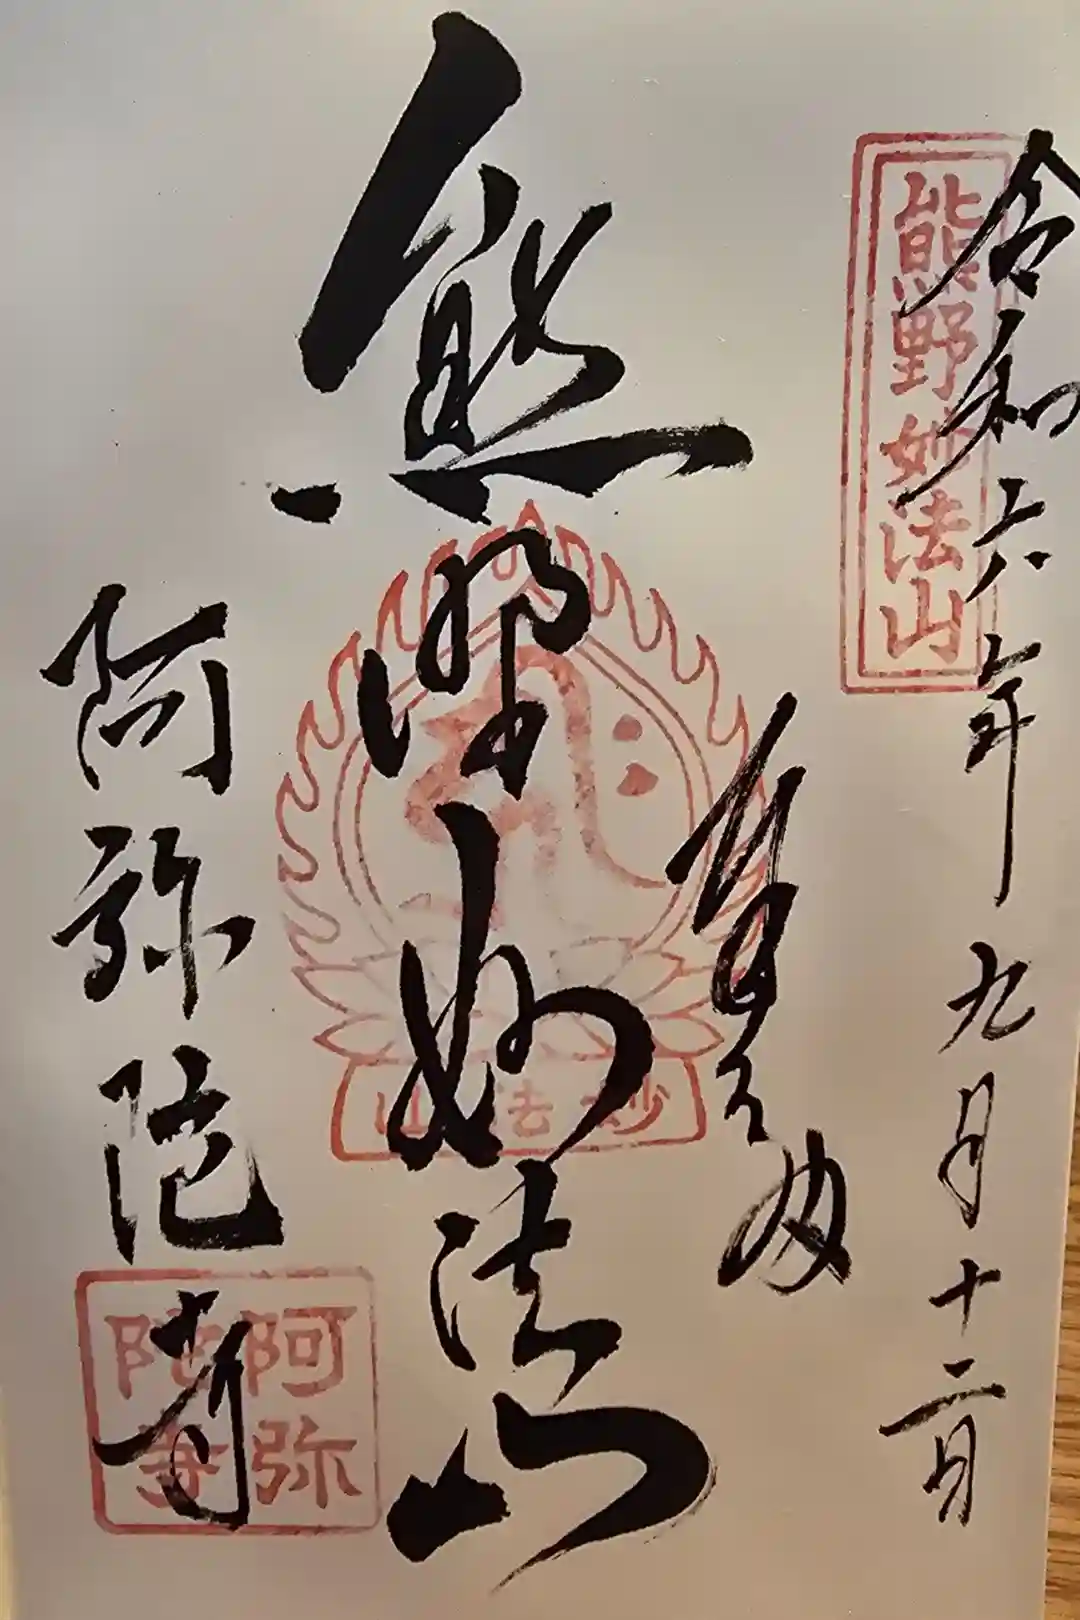 令和六年九月十二日
熊野妙法山
奉拝
熊野妙法山
妙法山
阿弥陀寺
阿弥陀寺